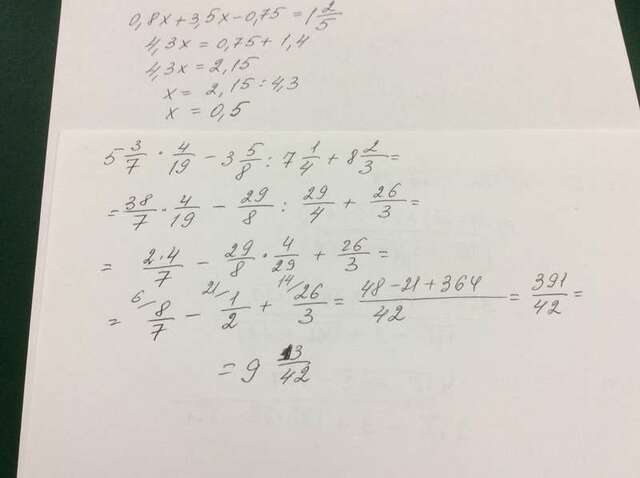 0,8x+3,5x-0,75=1 2/5
4,3x=0,75+1,4
4,3x=2,15
x=2,15:4,3
x=0,5
5 3/7 · 4/19 - 3 5/8 : 7 1/4 + 8 2/3 =
= 38/7 · 4/19 - 29/8 : 29/4 + 26/3 =
= 2·4/7 - 29/8 · 4/29 + 26/3 =
= 6/ 8/7 - 21/ 1/2 + 14/ 26/3 = 48-21+364/42 = 391/42 =
= 9 13/42